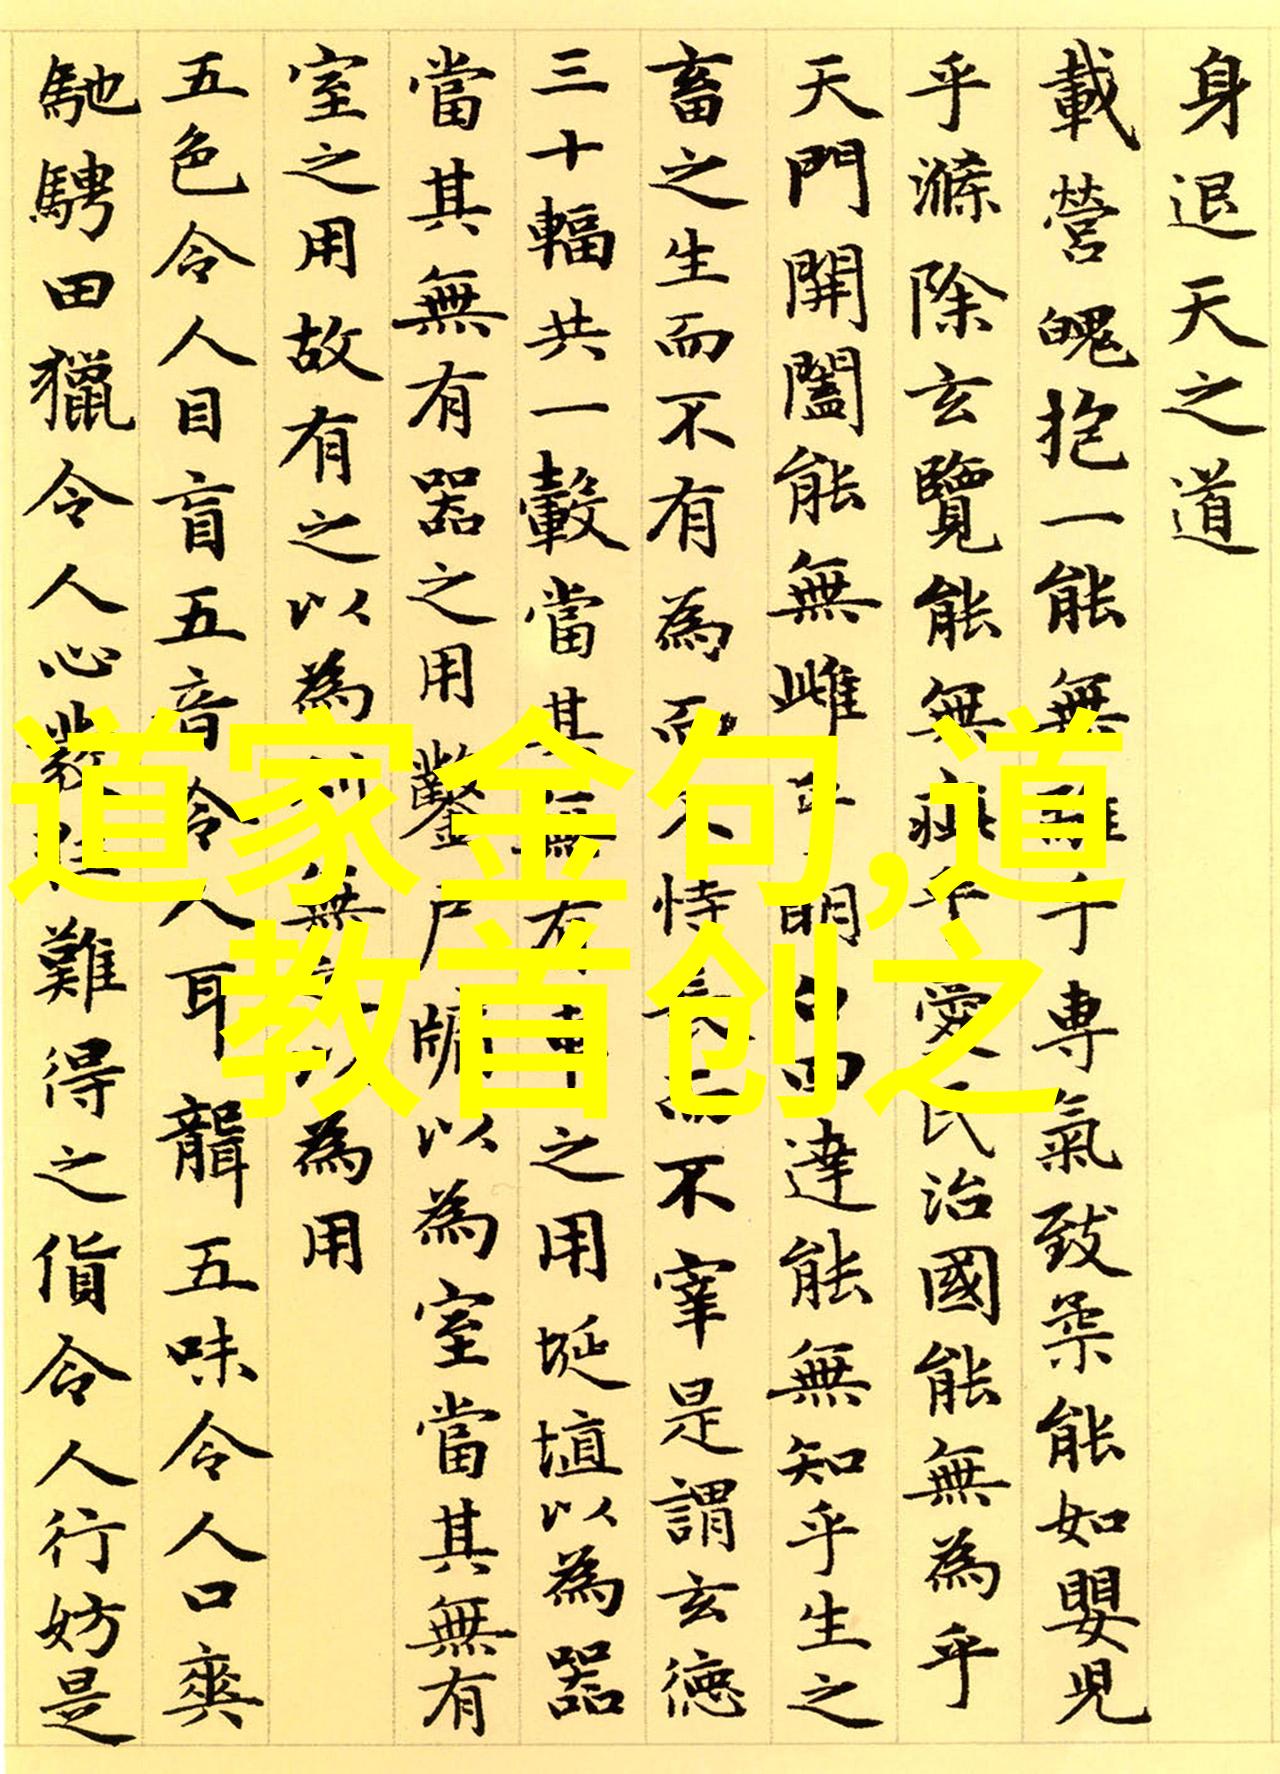 身退天之道
載營魄抱一能無離乎專氣致柔能如嬰兒
乎滌除玄覽能無疵乎愛民治國能無為乎
天門開闔能無雌乎明白四達能無知乎生之
畜之生而不有為而不恃長而不宰是謂玄德
三十輻共一轂當其無有車之用埏埴以為器
當其無有器之用鑿戶牖以為室當其無有
室之用故有之以為利無之以為用
五色令人目盲五音令人耳聾五味令人口爽
馳騁田獵令人心發狂難得之貨令人行妨是
道家金句,道
教首创之